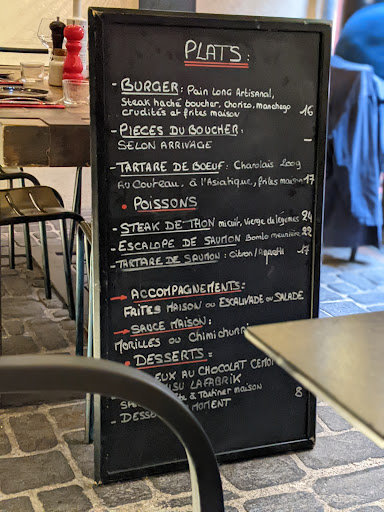 PLATS:
- BURGER: Pain Long Artisanal,
Steak haché boucher, Chorizo, manchego
crudités et frites maison 16
- PIECES DU BOUCHER:
SELON ARRIVAGE -
- TARTARE DE BOEUF: Charolais 200g
Au Couteau, à l'Asiatique, frites maison 17
• POISSONS
- STEAK DE THON mi cuit, Vierge de légumes 24
- ESCALOPE DE SAUMON Bomlo meunière 22
- TARTARE DE SAUMON: Citron/Aneth 17
→ ACCOMPAGNEMENTS:
FRITES MAISON ou ESCALIVADE ou SALADE
→ SAUCE MAISON:
MORILLES ou Chimichurri
• DESSERTS:
EUX AU CHOCOLAT CEMOI
LAFABRIK
à Tartiner maison 8
- DESS MOMENT